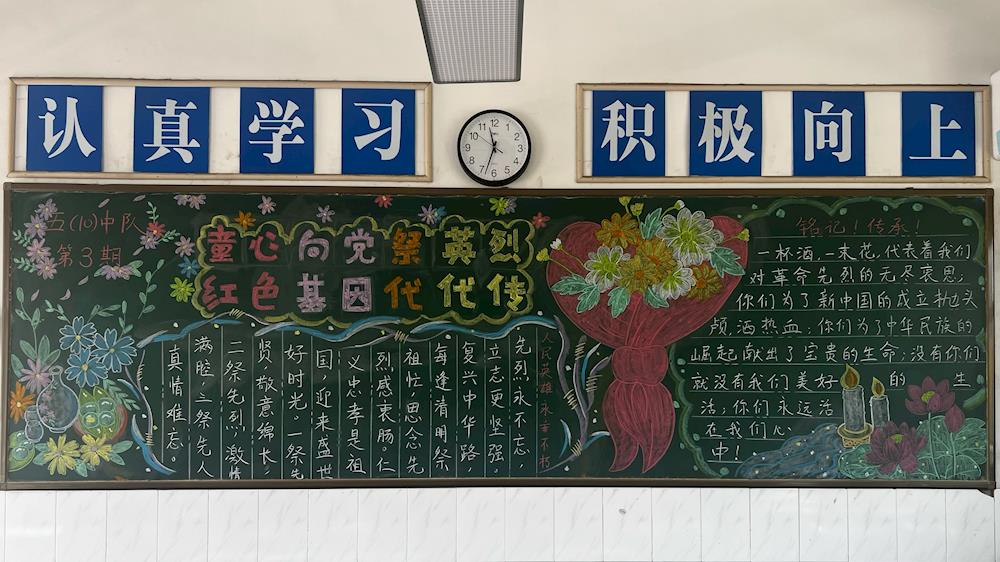 认真学习
积极向上
五(10)中队
第3期
童心向党祭英烈
红色基因代代传
人民英雄永垂不朽
先烈永不忘，
立志更坚强。
复兴中华路，
每逢清明祭
祖忙，思念先
烈感衷肠。仁
义忠孝是祖
国，迎来盛世
好时光。一祭先
贤，敬意绵长，
二祭先烈，激情
满腔，三祭先人
真情难忘。
铭记！传承！
一杯酒，一束花，代表着我们
对革命先烈的无尽哀思；
你们为了新中国的成立抛头
颅，洒热血；你们为了中华民族的
崛起献出了宝贵的生命；没有你们
就没有我们美好的生
活；你们永远活
在我们心
中！